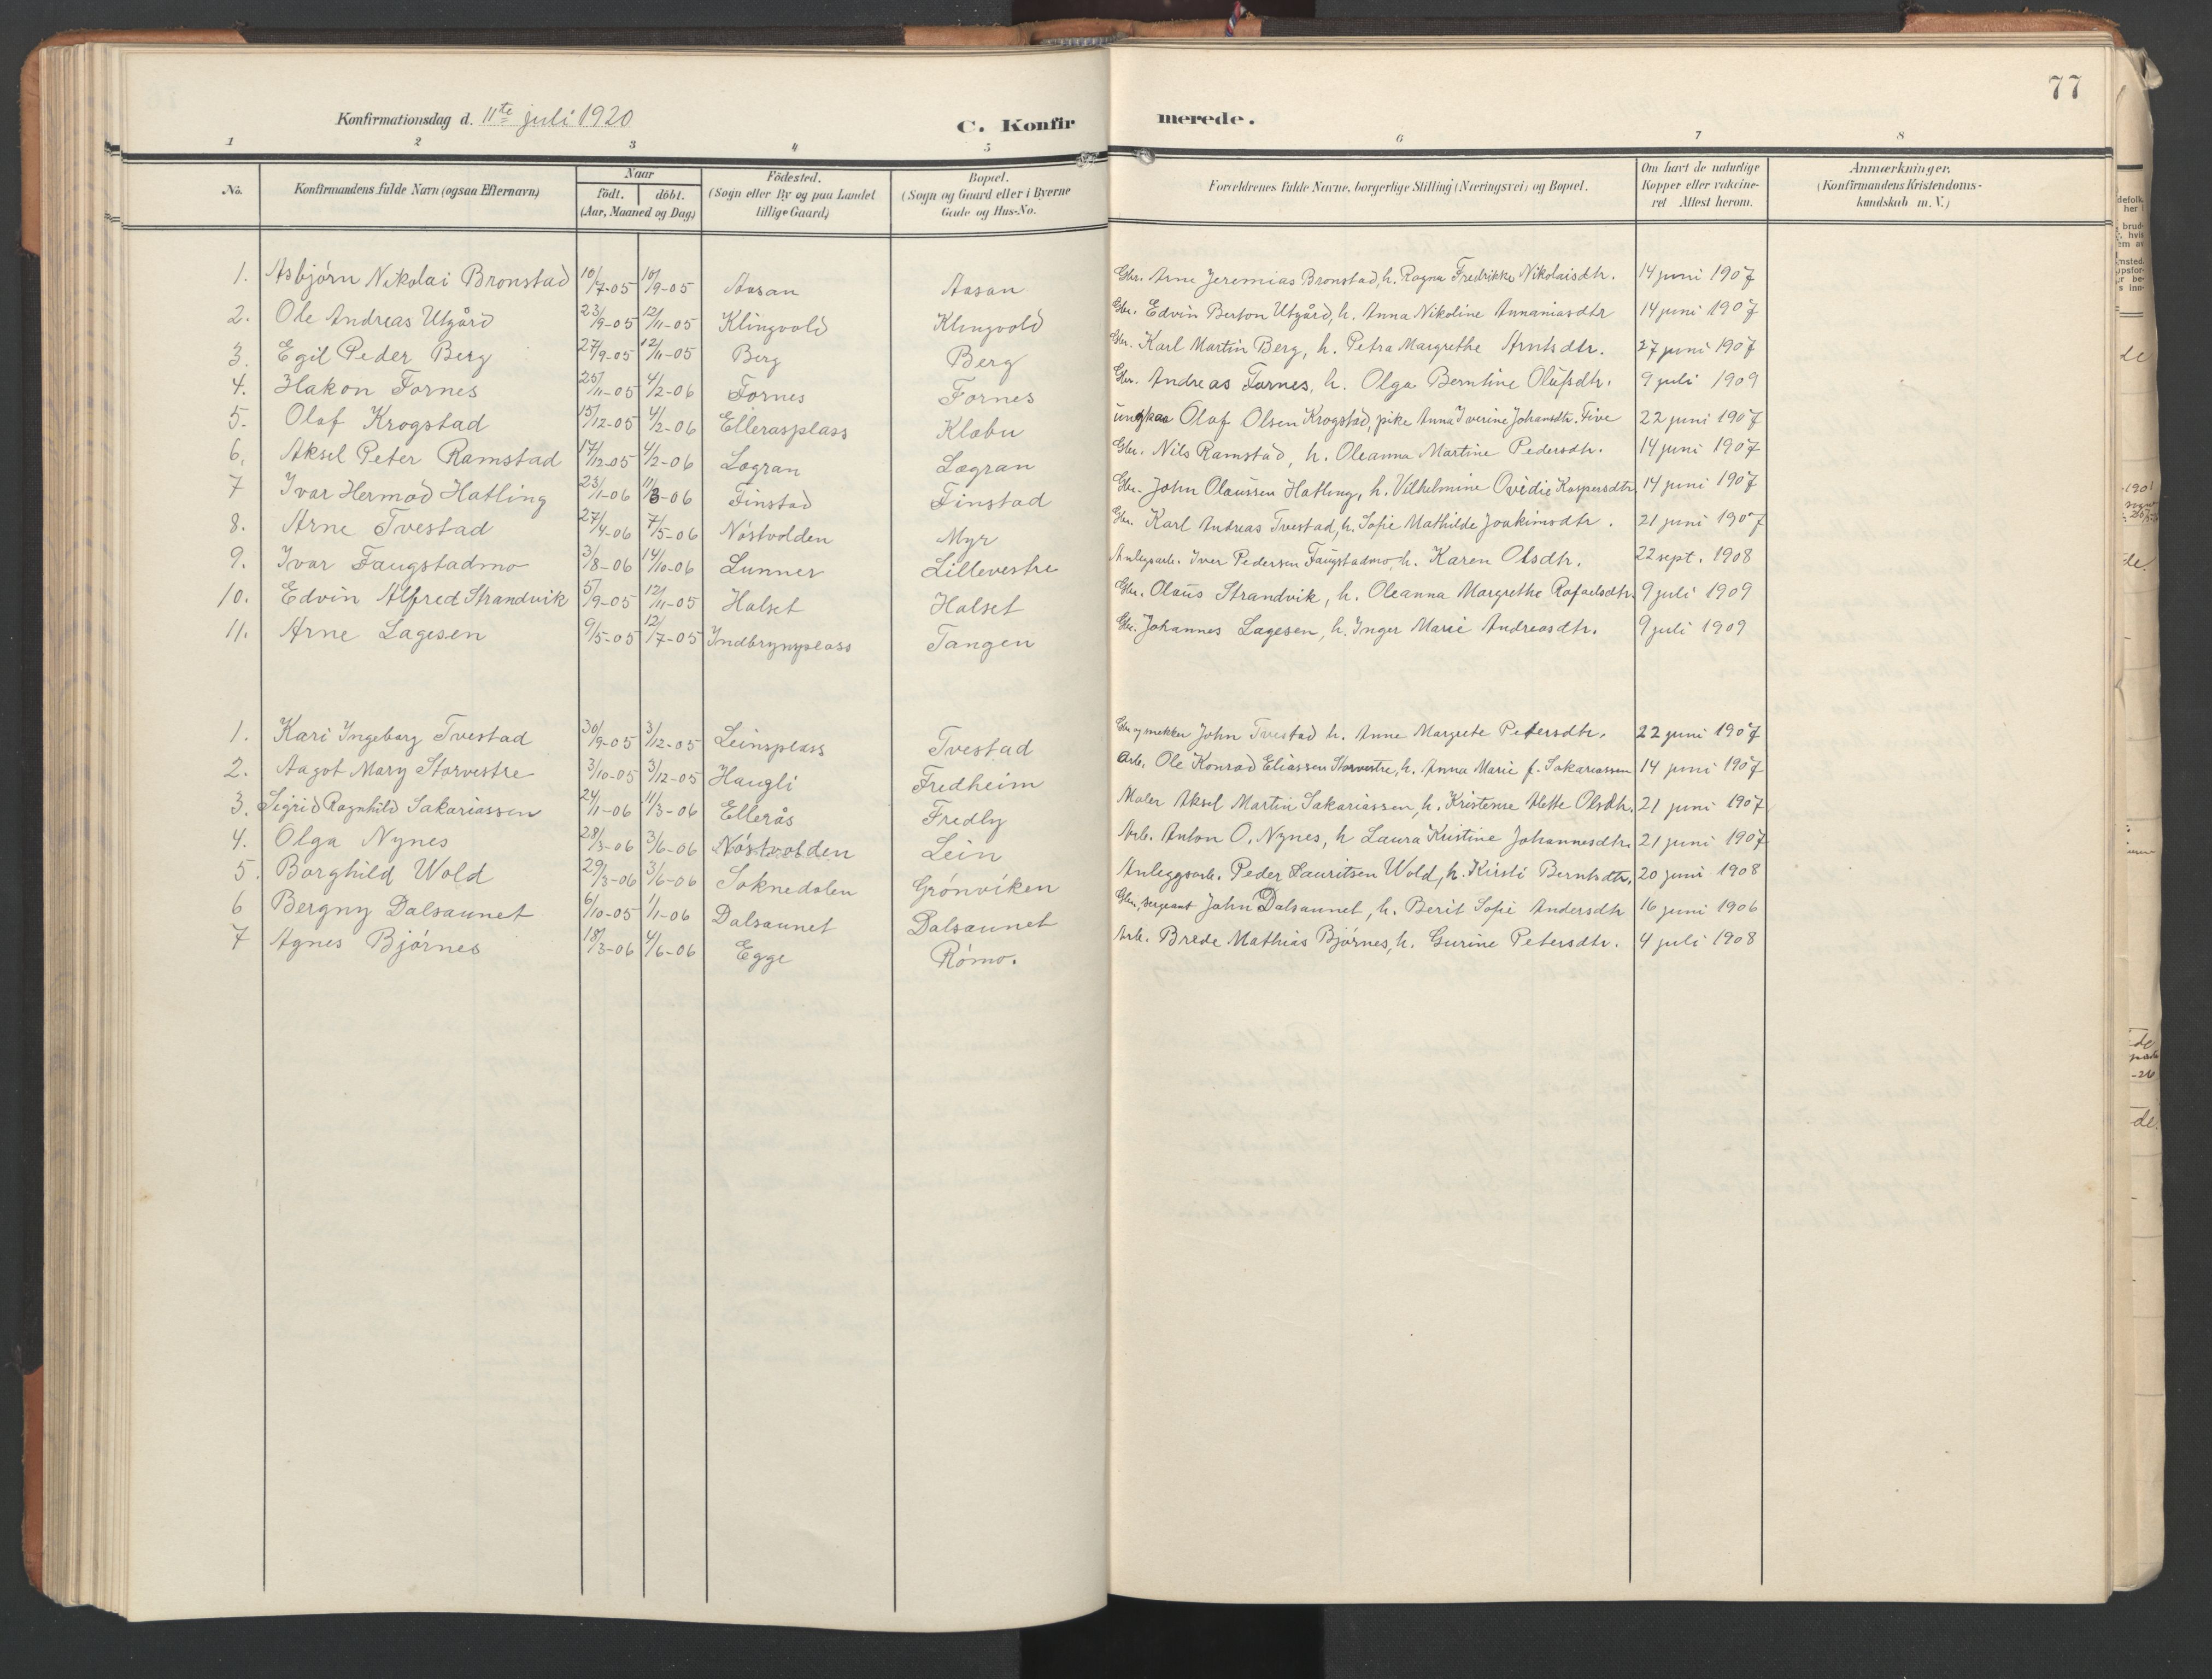 77
Konfirmationsdag d. 11te juli 1920
C. Konfirmerede.
1 2 3 4 5 6 7 8
No. Konfirmandens fulde Navn (ogsaa Efternavn) Naar födt. döbt. (Aar, Maaned og Dag) Födested. (Sogn eller By og paa Landet tillige Gaard) Bopæl. (Sogn og Gaard eller i Byerne Gade og Hus-No. Forældrenes fulde Navne, borgerlige Stilling (Næringsvei) og Bopæl. Om havt de naturlige Kopper eller vakcineret Attest herom. Anmærkninger. (Konfirmandens Kristendomskundskab m. V.)
1. Asbjörn Nikolai Bronstad 10/7-05 10/9-05 Aasan Aasan Gbr. Arne Jeremias Bronstad, h. Ragna Fredrikke Nikolaisdtr. 14 juni 1907
2. Ole Andreas Utgård 23/9-05 12/11-05 Klingvold Klingvold Gbr. Edvin Berton Utgård, h. Anna Nikoline Annaniasdtr 14 juni 1907
3. Egil Peder Berg 27/9-05 12/11-05 Berg Berg Gbr. Karl Martin Berg, h. Petra Margrethe Arntsdtr. 27 juni 1907
4. Hakon Fornes 25/11-05 4/2-06 Fornes Fornes Gbr. Andreas Fornes, h. Olga Berntine Olufsdtr. 9 juli 1909
5. Olaf Krogstad 15/12-05 4/2-06 Ellerasplass Klæbu ungkar Olaf Olsen Krogstad, pike Anna Iverine Johansdtr. Five 22 juni 1907
6. Aksel Peter Ramstad 17/12-05 4/2-06 Lægran Lægran Gbr. Nils Ramstad, h. Oleanna Martine Pedersdtr. 14 juni 1907
7 Ivar Hermod Hatling 23/1-06 11/3-06 Finstad Finstad Gbr. John Olaussen Hatling, h. Vilhelmine Ovidie Kaspersdtr. 14 juni 1907
8. Arne Tvestad 27/4-06 7/5-06 Nöstvolden Myr Gbr. Karl Andreas Tvestad, h. Sofie Mathilde Joakimsdtr. 21 juni 1907
9. Ivar Faugstadmo 3/8-06 14/10-06 Lunner Lillevestre Anlegsarb. Iver Pedersen Faugstadmo, h. Karen Olsdtr. 22 sept. 1908
10. Edvin Alfred Strandvik 5/9-05 12/11-05 Halset Halset Gbr. Olaus Strandvik, h. Oleanna Margrethe Rafaelsdtr. 9 juli 1909
11. Arne Lagesen 9/5-05 12/7-05 Indbrynyplass Tangen Gbr. Johannes Lagesen, h. Inger Marie Andreasdtr. 9 juli 1909
1. Kari Ingeborg Tvestad 30/9-05 3/12-05 Leinsplass Tvestad John Tvestad h. Anne Margrete Petersdtr. 22 juni 1907
2. Aagot Mary Storvestre 3/10-05 3/12-05 Haugli Fredheim Arb. Ole Konrad Eliassen Storvestre, h. Anna Marie f. Sakariassen 14 juni 1907
3. Sigrid Ragnhild Sakariassen 24/11-06 11/3-06 Ellerås Fredly Maler Aksel Martin Sakariassen, h. Kristense Alette Olsdtr. 21 juni 1907
4. Olga Nynes 28/3-06 3/6-06 Nöstvolden Lein Arb. Anton O. Nynes, h Laura Kristine Johannesdtr. 21 juni 1907
5. Borghild Wold 29/3-06 3/6-06 Soknedalen Grönviken Anleggsarb. Peder Lauritsen Wold, h. Kirsti Berntsdtr. 20 juni 1908
6 Bergny Dalsaunet 6/10-05 1/1-06 Dalsaunet Dalsaunet Gbr., sergeant John Dalsaunet, h. Berit Sofie Andersdtr 16 juni 1906
7 Agnes Björnes 18/3-06 4/6-06 Egge Römo. Arb. Brede Mathias Björnes, h. Gurine Petersdtr. 4 juli 1908